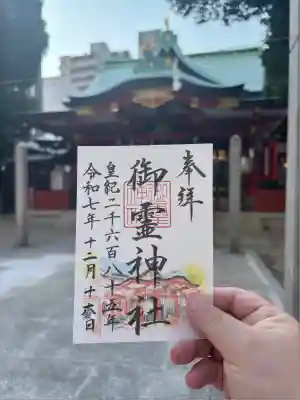 奉拝
御霊神社
皇紀二千六百八十五年
令和七年十二月十六日